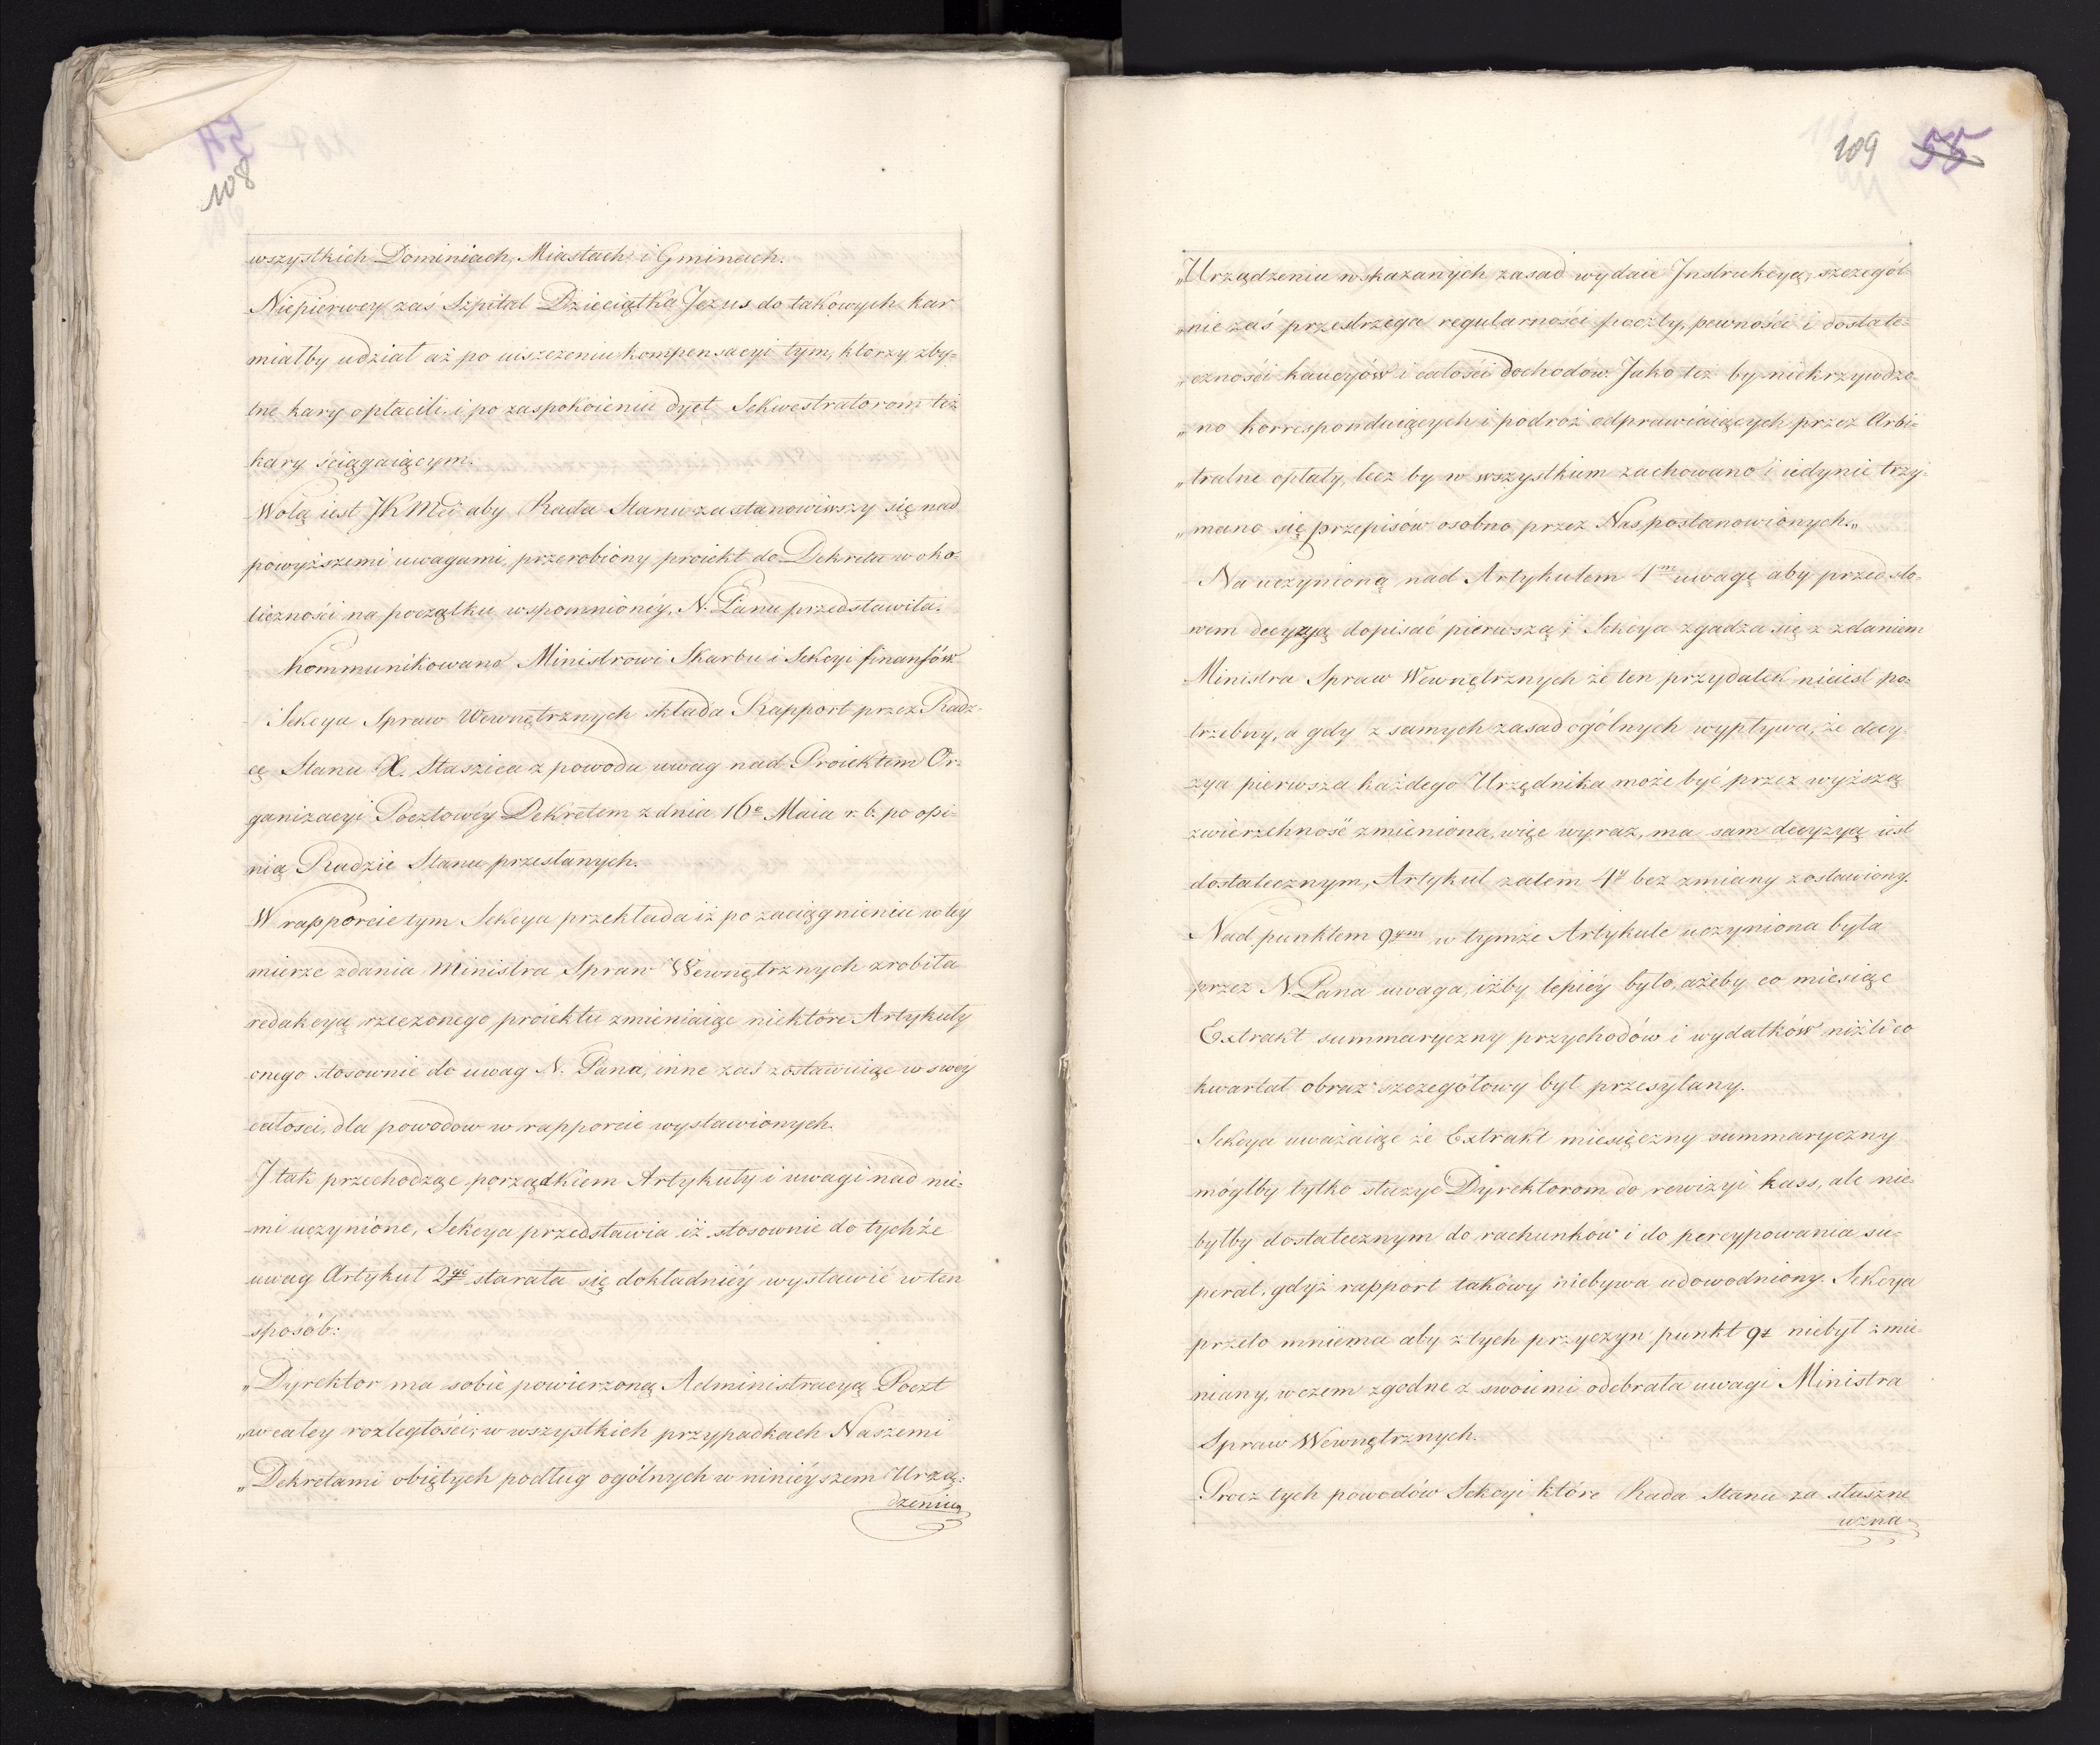 54
108
wszystkich Dominiach, Miastach i Gminach.
Niepierwey zaś Szpital Dzieciątka Jezus do takowych kar
miałby udział aż po uiszczeniu kompensacyi tym, którzy zby=
tne kary opłacili, i po zaspokoieniu dyet Sekwestratorom też
kary ściągaiącym.
Wolą iest JKMci aby Rada Stanu zastanowiwszy się nad
powyższemi uwagami, przerobiony proiekt do Dekretu w oko=
liczności na początku wspomnionéy, N. Panu przedstawiła.
Kommunikowano Ministrowi Skarbu i Sekcyi finansów
Sekcya Spraw Wewnętrznych składa Rapport przez Radz=
cę Stanu X. Staszica z powodu uwag nad Proiektem Or=
ganizacyi Pocztowéy Dekretem z dnia 16º Maia r. b. po opi=
nią Radzie Stanu przesłanych.
W rapporcie tym Sekcya przekłada iż po zaciągnieniu w tey
mierze zdania Ministra Spraw Wewnętrznych zrobiła
redakcyą rzeczonego proiektu zmieniaiąc niektóre Artykuły
onego stosownie do uwag N. Pana, inne zaś zostawuiąc w swéy
całości, dla powodów w rapporcie wystawionych.
I tak przechodząc porządkiem Artykuły i uwagi nad nie=
mi uczynione, Sekcya przedstawia iż stosownie do tychże
uwag Artykuł 2gi starała się dokładniéy wystawić w ten
sposób:
„Dyrektor ma sobie powierzoną Administracyą Poczt
„w całey rozległości; w wszystkich przypadkach Naszemi
„Dekretami obiętych podług ogólnych w ninieyszem Urzą=
dzeniu
109 55
„Urządzeniu wskazanych zasad wydaie Instrukcyą, szczegól
„nie zaś przestrzega regularności poczty, pewności i dostate=
„czności kaucyów i całości dochodów. Jako też by niekrzywdzo
„no korresponduiących i podróż odprawiaiących przez Arbi=
„tralne opłaty, lecz by w wszystkim zachowano i iedynie trzy=
„mano się przepisów osobno przez Nas postanowionych.„
Na uczynioną nad Artykułem 4m uwagę aby przed sło=
wem decyzyą dopisać pierwszą; Sekcya zgadza się z zdaniem
Ministra Spraw Wewnętrznych że ten przydatek nieiest po=
trzebny, a gdy z samych zasad ogólnych wypływa, że decy=
zya pierwsza każdego Urzędnika może być przez wyższą
zwierzchność zmieniona, więc wyraz, ma sam decyzyą iest
dostatecznym, Artykuł zatem 4y bez zmiany zostawiony.
Nad punktem 9ym w tymże Artykule uczyniona była
przez N. Pana uwaga, iżby lepiéy było, ażeby co miesiąc
Extrakt summaryczny przychodów i wydatków niżli co
kwartał obraz szczegółowy był przesyłany.
Sekcya uważaiąc że Extrakt miesięczny summaryczny
mógłby tylko służyć Dyrektorom do rewizyi kass, ale nie=
byłby dostatecznym do rachunków i do percypowania su=
perat, gdyż rapport takowy niebywa udowodniony. Sekcya
przeto mniema aby z tych przyczyn punkt 9t niebył zmie=
niany, w czem zgodne z swoiemi odebrała uwagi Ministra
Spraw Wewnętrznych.
Procz tych powodów Sekcyi które Rada Stanu za słuszne
uzna